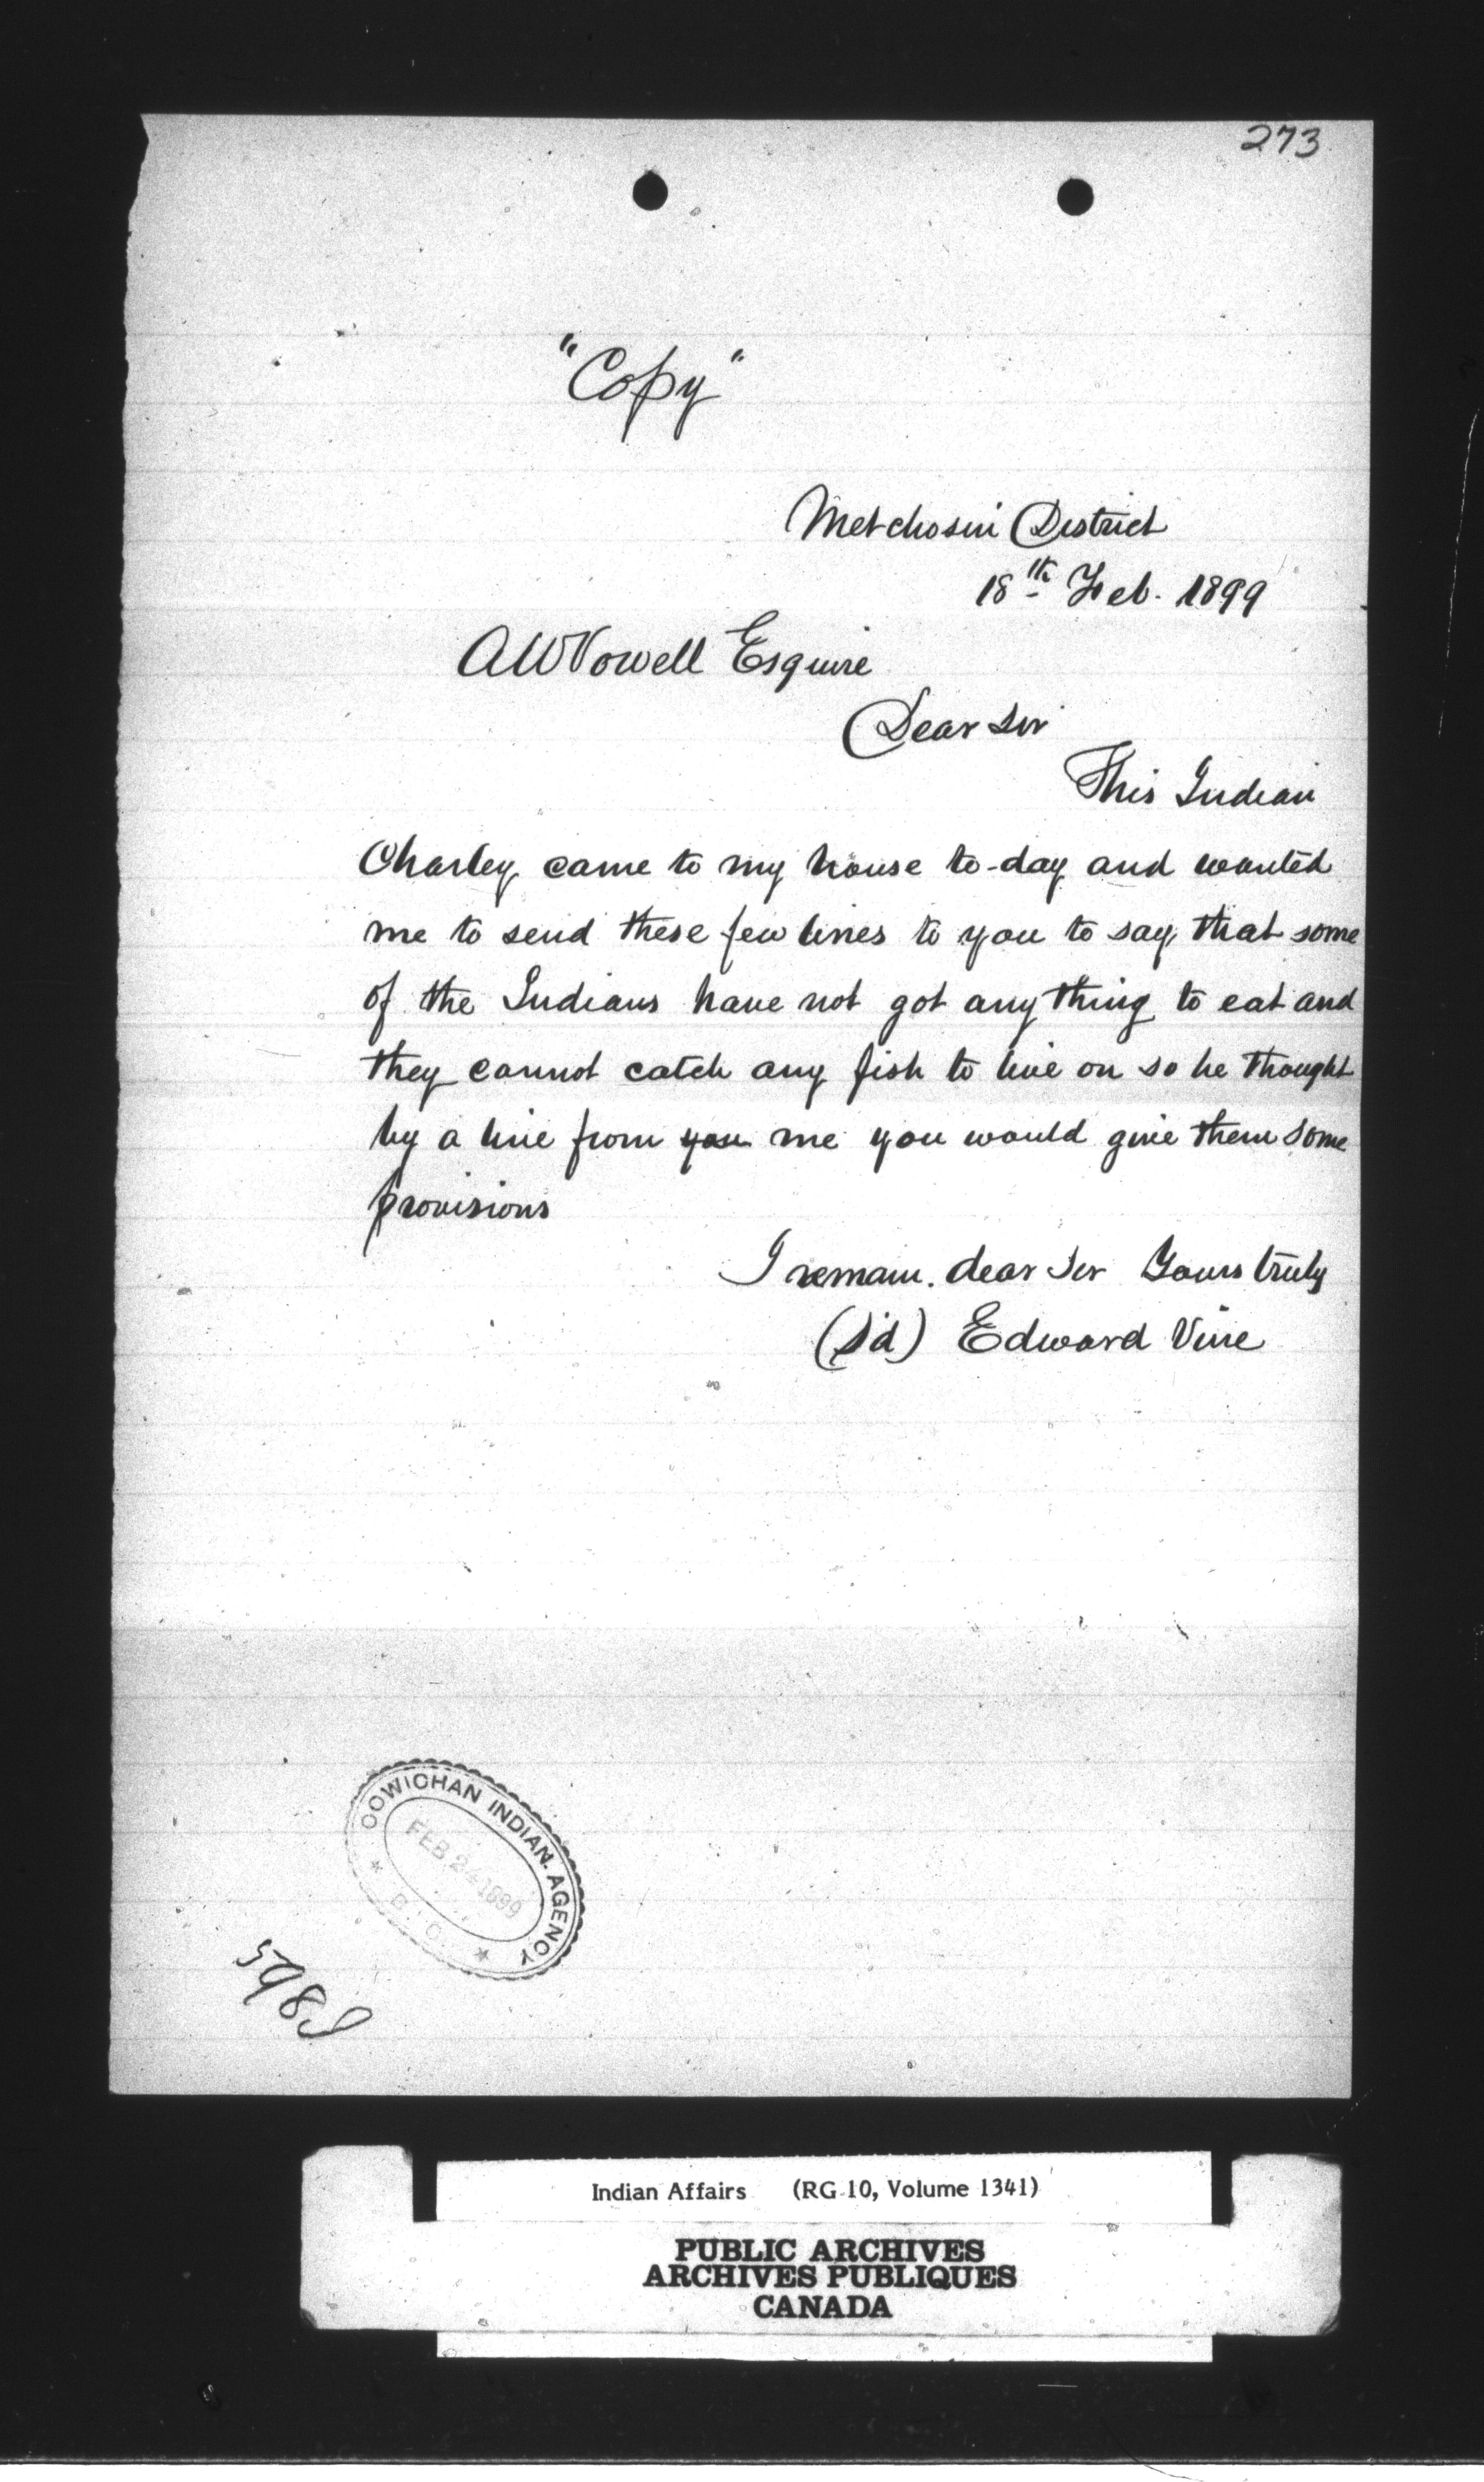 273
"Copy"
Metchosin District
18th Feb. 1899
AW Vowell Esquire
Dear Sir
This Indian
Charley came to my house to-day and wanted
me to send these few lines to you to say that some
of the Indians have not got any thing to eat and
they cannot catch any fish to live on so he thought
by a line from you me you would give them some
provisions
I remain. dear Sir Yours truly
(S'd) Edward Vine
COWICHAN INDIAN. AGENCY
FEB. 24 1899
B. C.
Indian Affairs (RG 10, Volume 1341)
PUBLIC ARCHIVES
ARCHIVES PUBLIQUES
CANADA